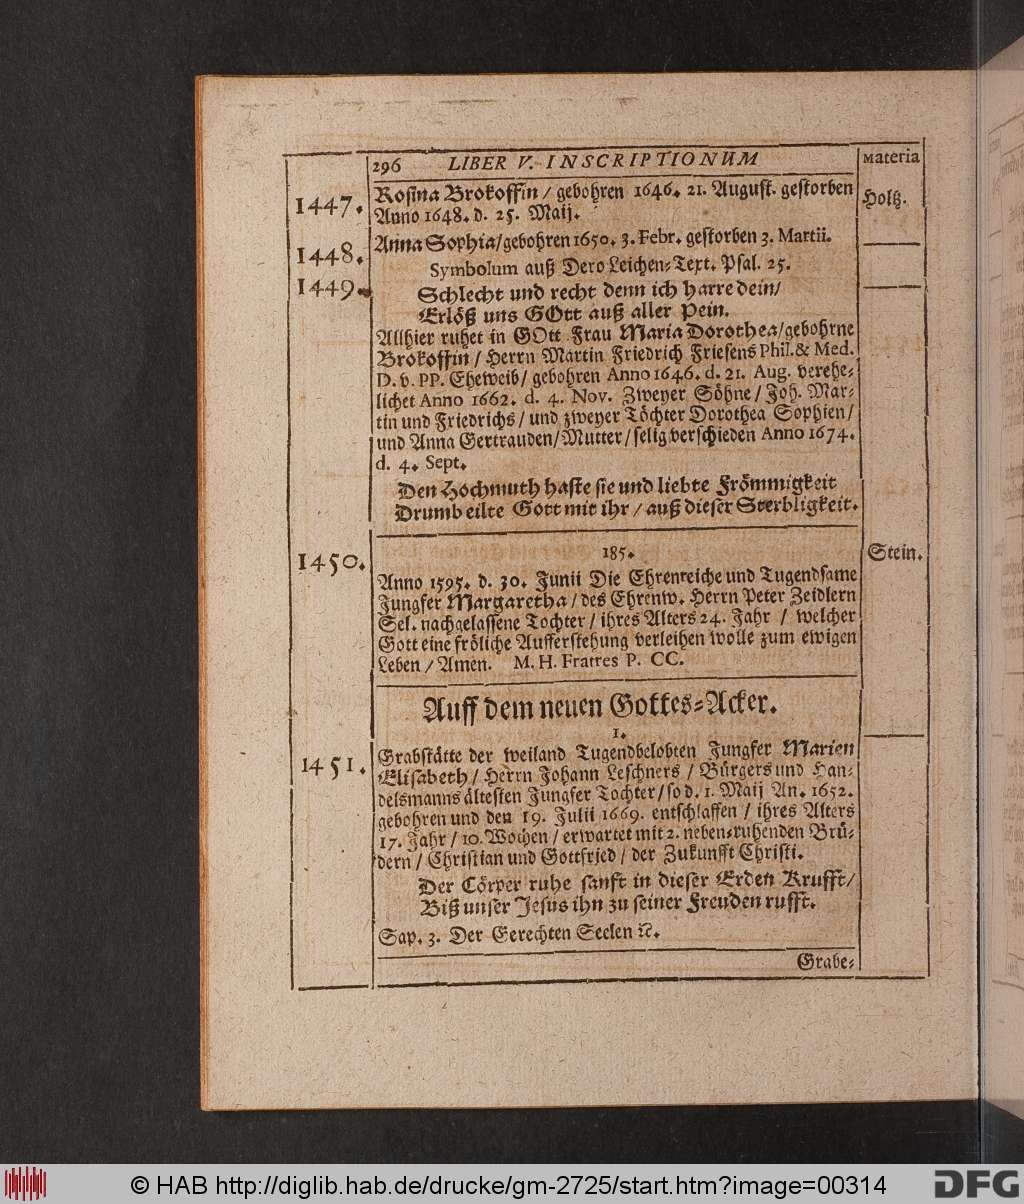 296 LIBER V. INSCRIPTIONUM Materia
1447. Rosina Brokoffin / gebohren 1646. 21. August. gestorben Holtz.
Anno 1648. d. 25. Maij.
1448. Anna Sophia / gebohren 1650. 3. Febr. gestorben 3. Martii.
Symbolum auß Dero Leichen-Text. Psal. 25.
1449. Schlecht und recht denn ich harre dein /
Erlöß uns GOtt auß aller Pein.
Allhier ruhet in GOtt Frau Maria Dorothea / gebohrne
Brokoffin / Herrn Martin Friedrich Friesens Phil. & Med.
D. v. PP. Eheweib / gebohren Anno 1646. d. 21. Aug. verehe-
lichet Anno 1662. d. 4. Nov. Zweyer Söhne / Joh. Mar-
tin und Friedrichs / und zweyer Töchter Dorothea Sophien /
und Anna Gertrauden / Mutter / selig verschieden Anno 1674.
d. 4. Sept.
Den Hochmuth haste sie und liebte Frömmigkeit
Drumb eilte Gott mit ihr / auß dieser Sterbligkeit.
185.
1450. Stein.
Anno 1595. d. 30. Junii Die Ehrenreiche und Tugendsame
Jungfer Margaretha / des Ehrenw. Herrn Peter Zeidlern
Sel. nachgelassene Tochter / ihres Alters 24. Jahr / welcher
Gott eine fröliche Aufferstehung verleihen wolle zum ewigen
Leben / Amen. M. H. Fratres P. CC.
Auff dem neuen Gottes-Acker.
1.
1451. Grabstätte der weiland Tugendbelobten Jungfer Marien
Elisabeth / Herrn Johann Leschners / Bürgers und Han-
delsmanns ältesten Jungfer Tochter / so d. 1. Maij An. 1652.
gebohren und den 19. Julii 1669. entschlaffen / ihres Alters
17. Jahr / 10. Wochen / erwartet mit 2. neben-ruhenden Brü-
dern / Christian und Gottfried / der Zukunfft Christi.
Der Cörper ruhe sanft in dieser Erden Krufft /
Biß unser Jesus ihn zu seiner Freuden rufft.
Sap. 3. Der Gerechten Seelen ꝛc.
Grabe-
© HAB http://diglib.hab.de/drucke/gm-2725/start.htm?image=00314
DFG